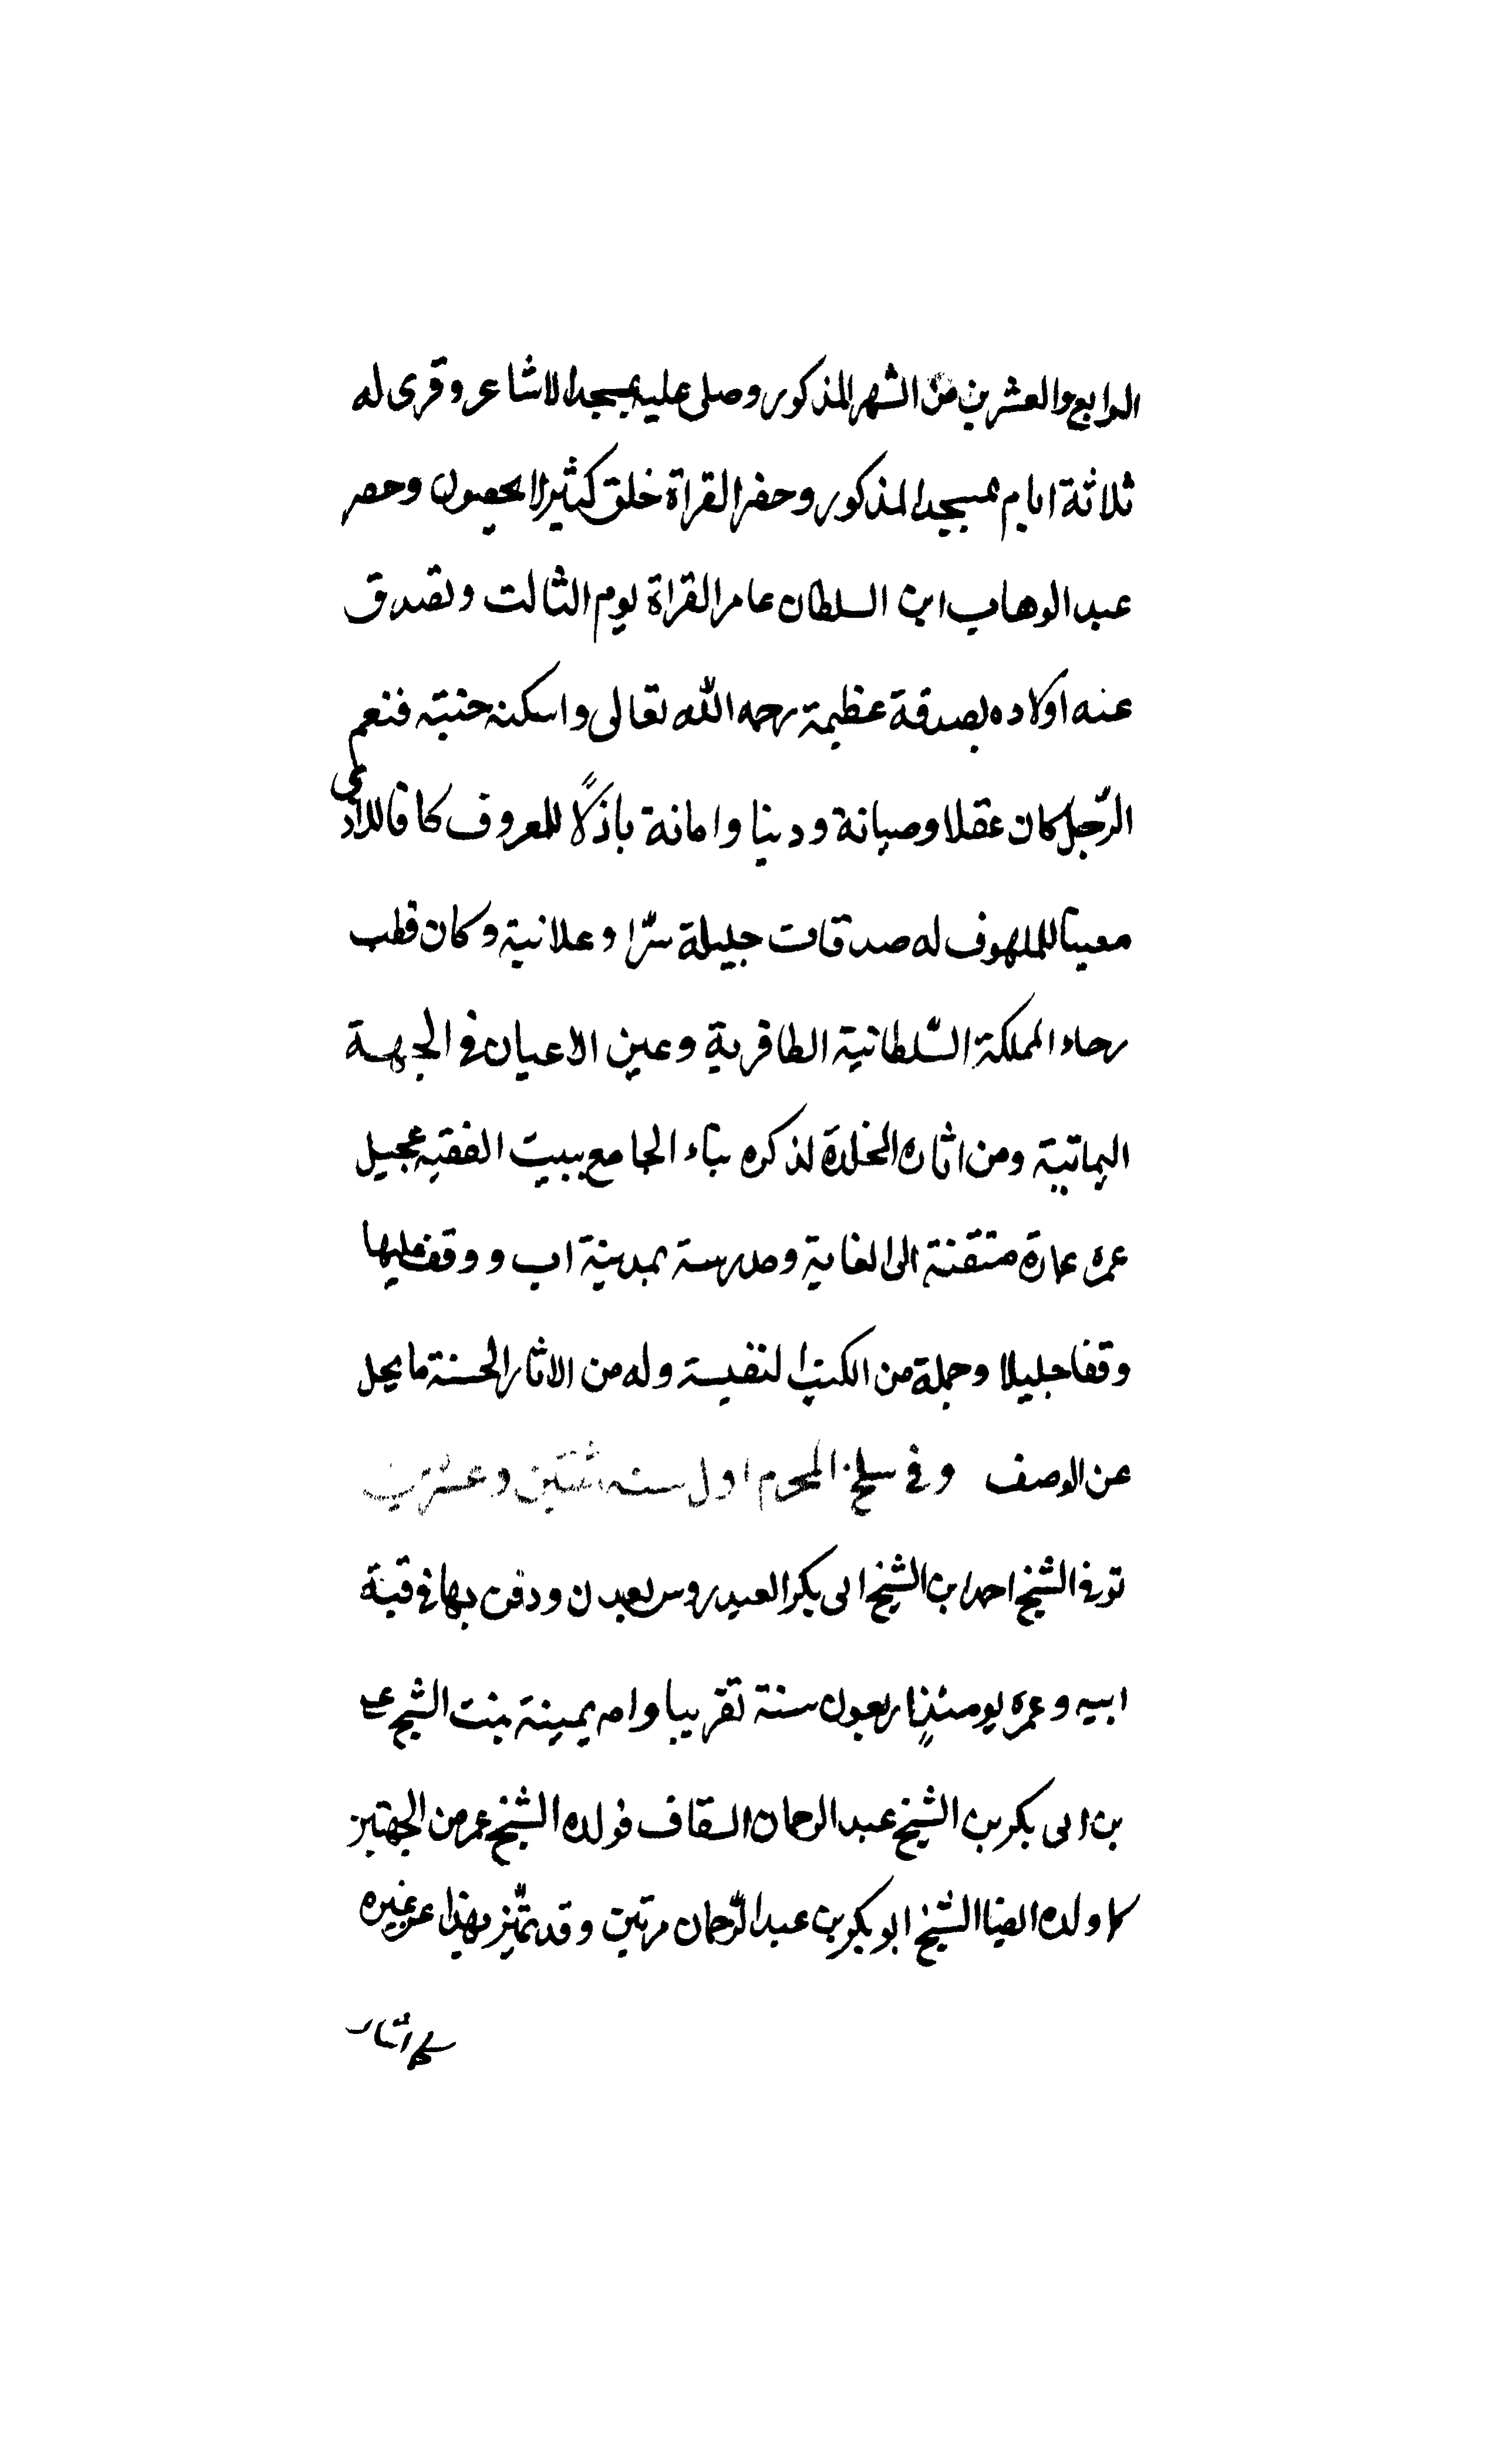 الرابع والعشرين من الشهر المذكور وصلى عليه بمسجد الاشاعر وقرى له
ثلاثة ايام بمسجد المذكور وحضر القراة خلق كثير لا يحصون وحضر
عبد الوهاب ابن السلطان عامر القراة يوم الثالث وتصدق
عنه اولاده بصدقة عظيمة رحمه الله تعالى واسكنه جنته فنعم
الرّجل كان عقلا وصيانة ودينا وامانة باذلًا للمعروف كافا للاذى
معينا للملهوف له صدقات جليلة سرّا وعلانية وكان قطب
رحاء المملكة السّلطانية الطافرية وعين الاعيان في الجهة
اليمانية ومن اثاره المخلدة لذكره بناء الجامع ببيت الفقيه عجيل
عمره عمارة متقنة الى الغاية ومدرسة بمدينة اب ووقف عليها
وقفا جليلا وجملة من الكتب النفيسة وله من الاثار الحسنة ما يجل
عن الوصف وفي سلخ المحرم اول سنه اثنتين وعشرين
توفي الشيخ احمد ابن الشيخ ابى بكر العيدروس بعدن ودفن بها في قبة
ابيه وعمره يومئذٍ اربعون سنة تقريبا وامه يمينة بنت الشيخ عمر
بن ابى بكر بن الشيخ عبد الرحمان السقاف فولده الشيخ عمر من الجهتين
كما ولده ايضا الشيخ ابو بكر بن عبد الرّحمان مرتين وقد تميّز بهذا عن غيره